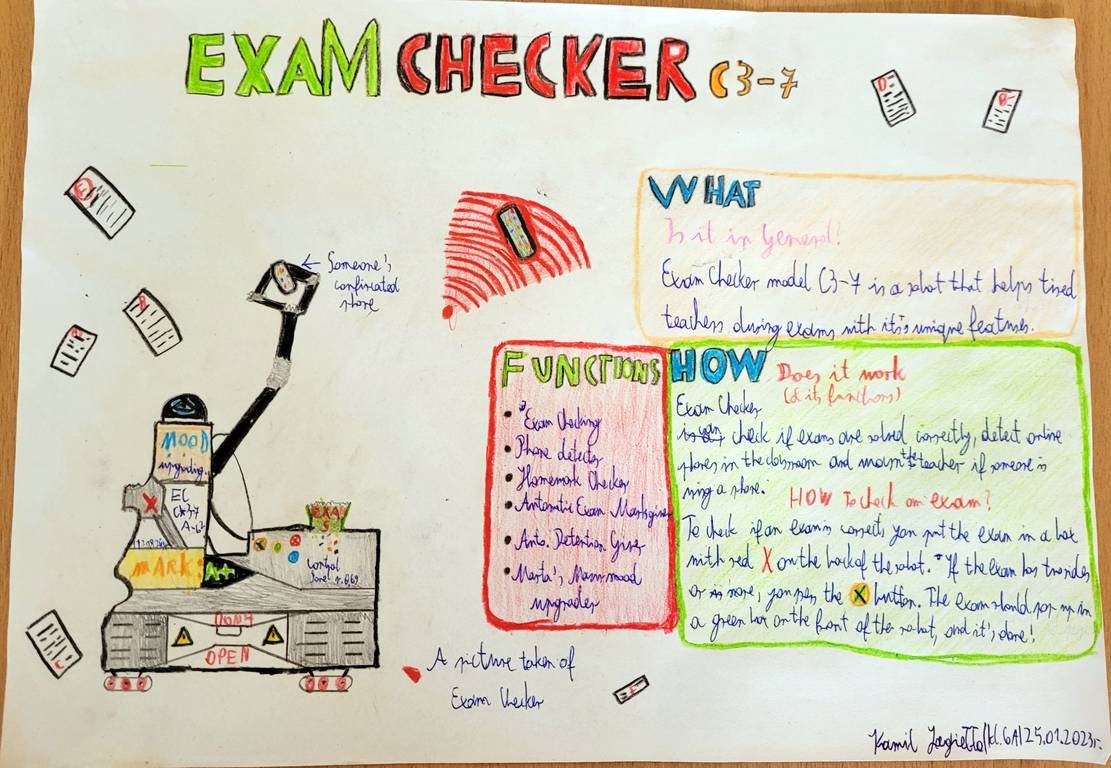 EXAM CHECKER C3-7
WHAT
Is it in General?
Exam Checker model C3-7 is a robot that helps tired
teachers during exams with it's unique features.
Someone's
confiscated
phone
FUNCTIONS
Exam Checking
Phone detector
Homework Checker
Automatic Exam Marksgiver
Auto. Detention Giver
Marta's, Mammood
upgrader
HOW Does it work
(& its functions)
Exam Checker
can check if exams are solved correctly, detect online
phones in the classroom and warn the teacher if someone is
using a phone.
HOW To check an exam?
To check if an exam is correct, you put the exam in a box
with red X on the back of the robot. If the exam has two sides
or more, you press the X button. The exam should pop up in
a green box on the front of the robot, and it's done!
MOOD
upgrading
X
EC
C3-7
MARK:
A+
EXAM
S
Control
DON'T
OPEN
A picture taken of
Exam Checker
Kamil Jagiełło kl.6A 25.01.2023r.